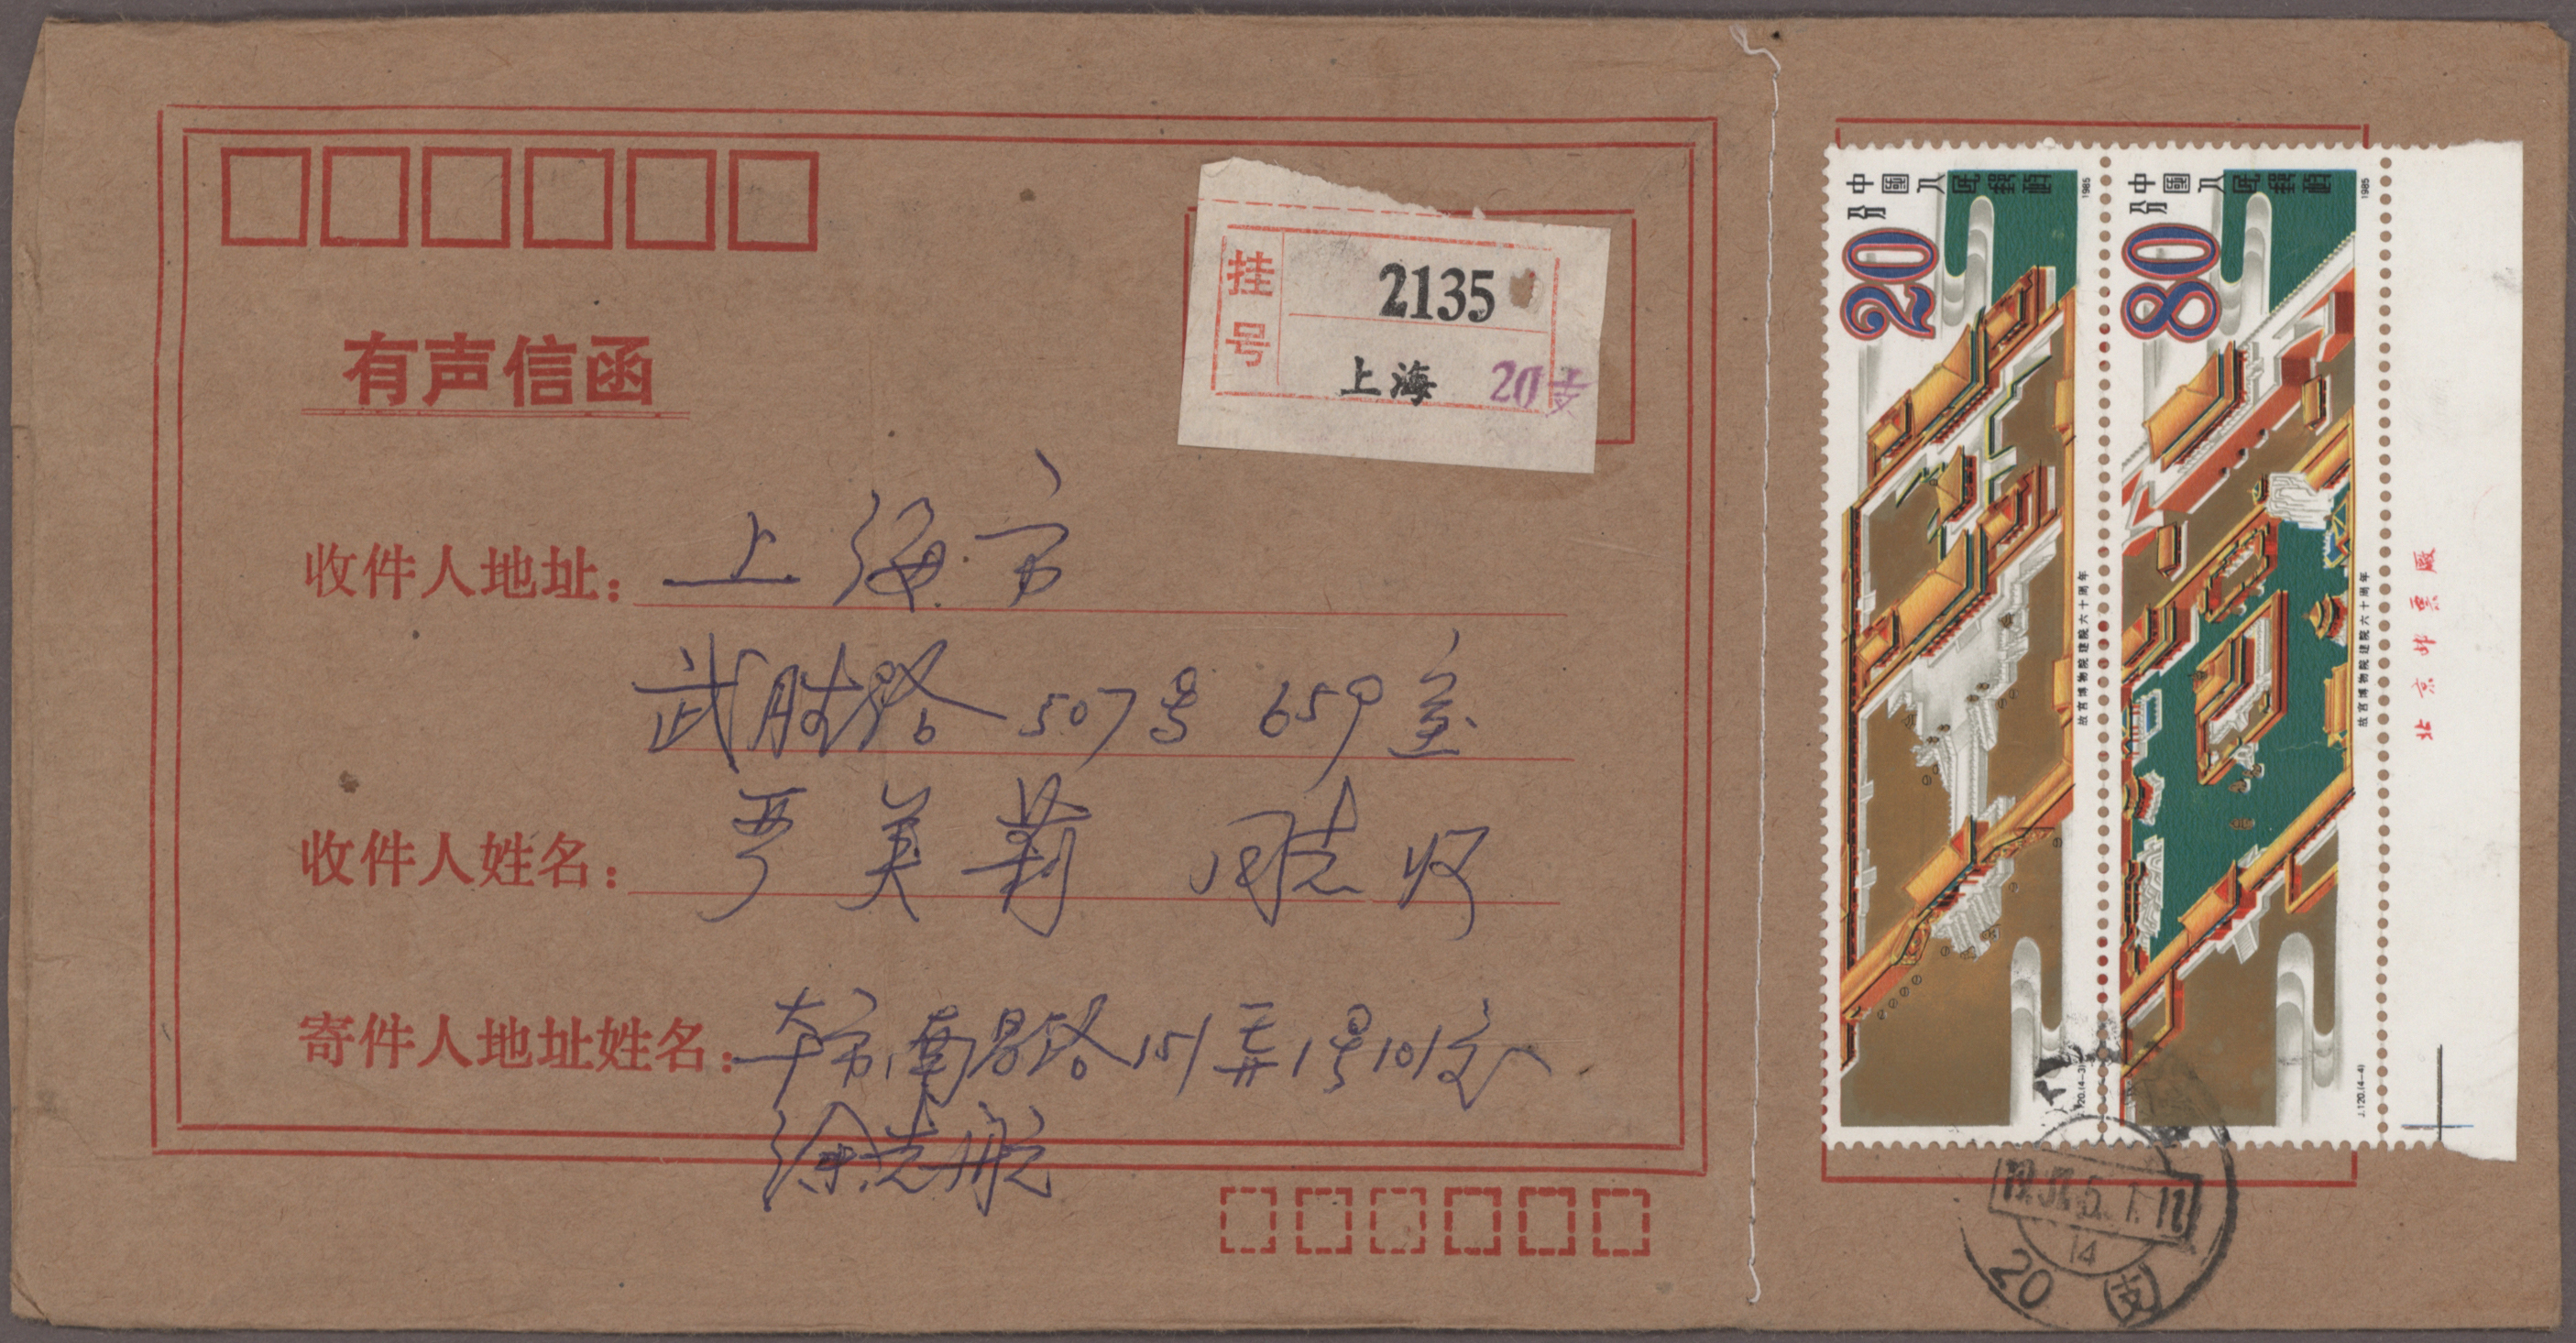 有声信函
挂号
2135
上海 20支
收件人地址：上海市
武胜路507号 659室
收件人姓名：严美莉 同志收
寄件人地址姓名：本市南昌路151弄1号101室
徐志航
中國人民郵政
20分
1985
故宫博物院建院六十周年
J.120.(4-3)
中國人民郵政
80分
1985
故宫博物院建院六十周年
J.120.(4-4)
北京邮票廠
14
20 (支)